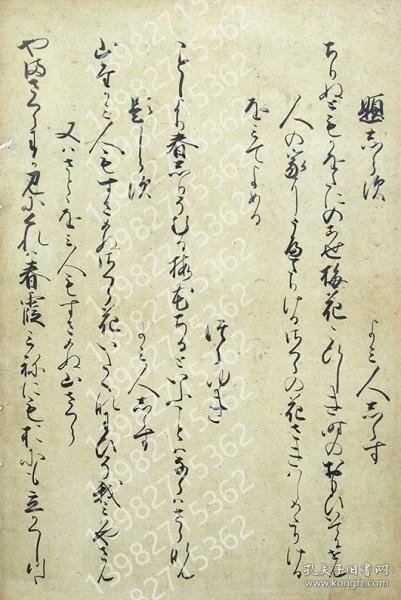 題しらす　よみ人しらす
ちりぬともかをたにのこせ梅花こひしき時のおもひいてにせん
人の家にうへたりけるさくらの花さきはしめたりける
をみてよめる
つらゆき
ことしより春しりそむる桜花ちるといふことはならはさらなん
題しらす　よみ人しらす
山たかみ人もすさめぬさくら花いたくなわひそ我みはやさん
又はさとをみ人もすさめぬ山さくら
やまさくらわか見にくれは春霞みねにもおにも立かくしつゝ
13982715362
孔夫子旧书网
www.kongfz.com